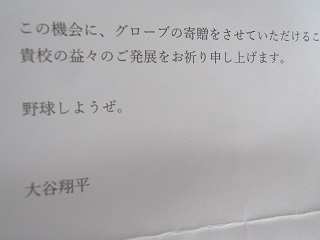 この機会に、グローブの寄贈をさせていただけるこ
貴校の益々のご発展をお祈り申し上げます。
野球しようぜ。
大谷翔平